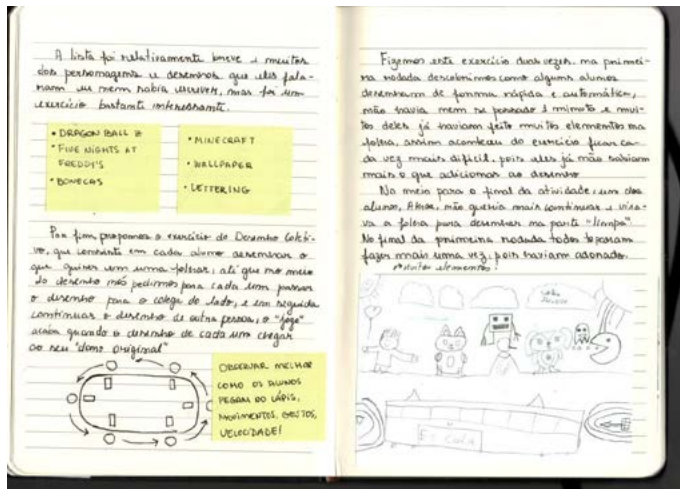 A lista foi relativamente breve e muitos
dos personagens e desenhos que eles fala-
ram eu nem sabia escrever, mas foi um
exercício bastante interessante.
• DRAGON BALL Z
• FIVE NIGHTS AT
FREDDY'S
• BONECAS
• MINECRAFT
• WALLPAPER
• LETTERING
Por fim, propomos o exercício do Desenho Coleti-
vo, que consiste em cada aluno desenhar o
que quiser em uma folha, até que no meio
do desenho nós pedimos para cada um passar
o desenho para o colega do lado, e em seguida
continuar o desenho de outra pessoa, o "jogo"
acaba quando o desenho de cada um chegar
ao seu "dono original"
OBSERVAR MELHOR
COMO OS ALUNOS
PEGAM DO LÁPIS,
MOVIMENTOS, GESTOS,
VELOCIDADE!
Fizemos este exercício duas vezes, na primei-
ra rodada descobrimos como alguns alunos
desenham de forma rápida e automática,
não havia nem se passado 1 minuto e mui-
tos deles já haviam feito muitos elementos na
folha, assim aconteceu do exercício ficar ca-
da vez mais difícil, pois eles já não sabiam
mais o que adicionar ao desenho
No meio para o final da atividade, um dos
alunos, não queria mais continuar e vira-
va a folha para desenhar na parte "limpa"
No final da primeira rodada todos toparam
fazer mais uma vez, pois haviam adorado.
muitos elementos!